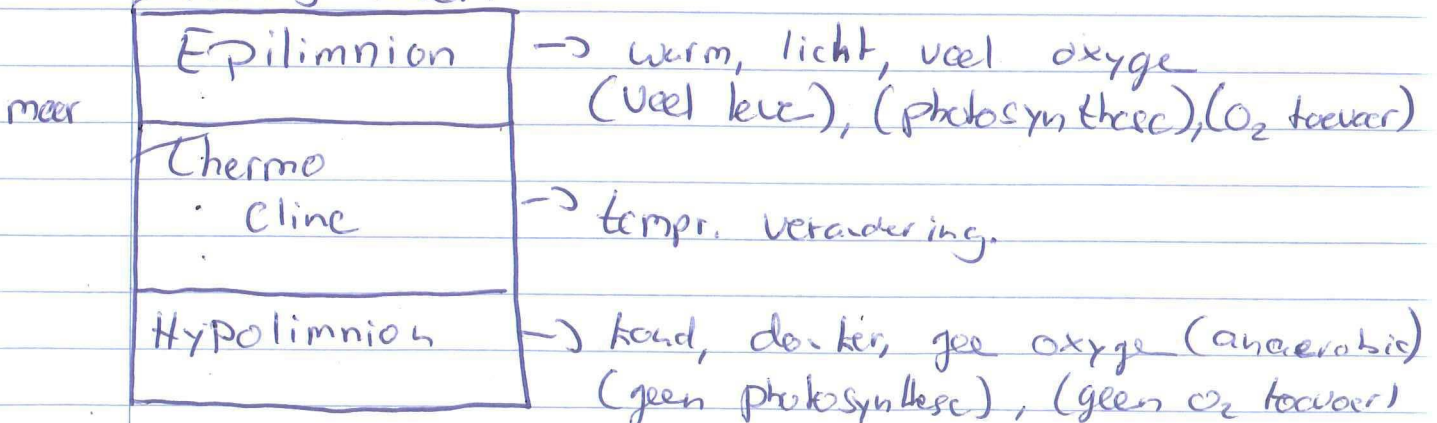 Epilimnion → warm, licht, veel oxyge
meer (veel leve), (photosynthese), (O₂ toevoer)
Thermo
cline → tempr. verandering.
Hypolimnion → koud, donker, gee oxyge (anaerobic)
(geen photosynthese), (geen O₂ toevoer)